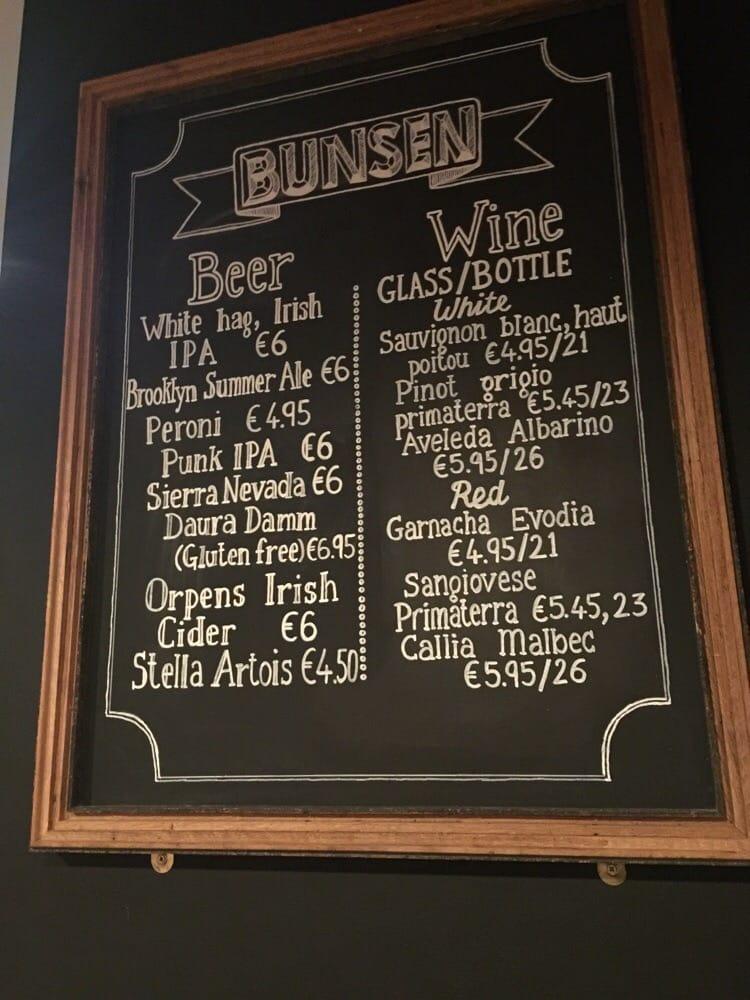 BUNSEN
Beer
White hag, Irish
IPA €6
Brooklyn Summer Ale €6
Peroni €4.95
Punk IPA €6
Sierra Nevada €6
Daura Damm
(Gluten free) €6.95
Orpens Irish
Cider €6
Stella Artois €4.50
Wine
GLASS/BOTTLE
White
Sauvignon blanc, haut
poitou €4.95/21
Pinot grigio
primaterra €5.45/23
Aveleda Albarino
€5.95/26
Red
Garnacha Evodia
€4.95/21
Sangiovese
Primaterra €5.45,23
Callia Malbec
€5.95/26